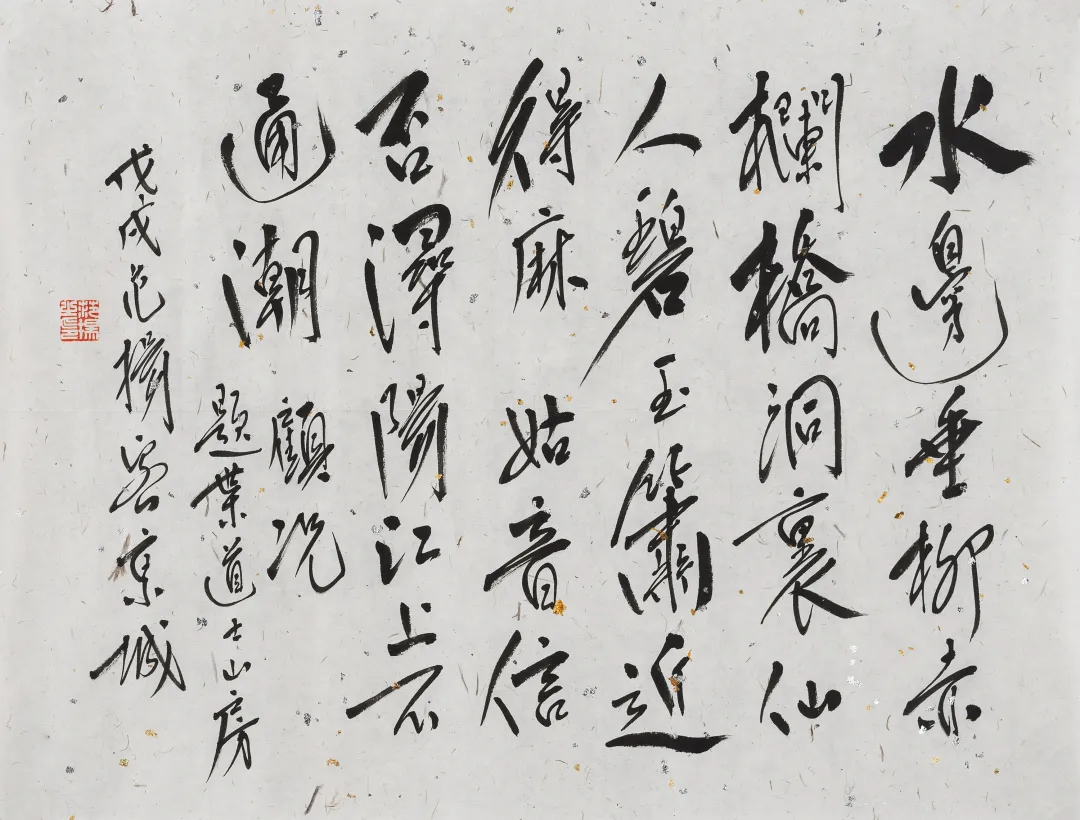 水邊垂柳赤
欄橋洞裏仙
人碧玉簫近
得麻姑音信
否潯陽江上不
通潮 顧況
題葉道士山房
戊戌范揚客京城
范揚之印